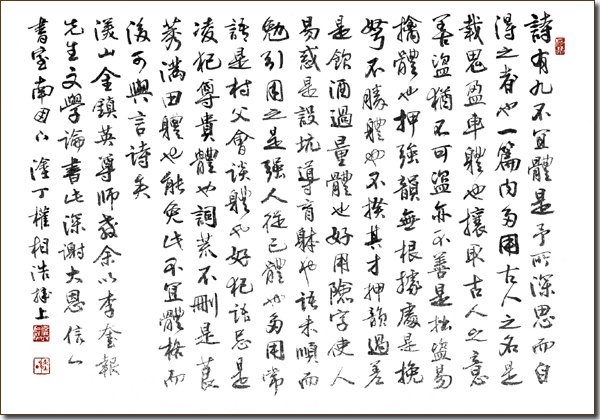 詩有九不宜體是予所深思而自
得之者也一篇內多用古人之名是
載鬼盈車體也攘取古人之意
善盜猶不可盜亦不善是拙盜易
擒體也押強韻無根據處是挽
弩不勝體也不揆其才押韻過差
是飲酒過量體也好用險字使人
易惑是設坑導盲體也語未順而
勉引用之是強人從己體也多用常
語是村父會談體也好犯語忌是
凌犯尊貴體也詞荒不刪是莨
莠滿田體也能免此不宜體格而
後可與言詩矣
渼山金鎮英導師教余以李奎報
先生文學論書此深謝大恩信
書室南田塗丁權相浩拜上